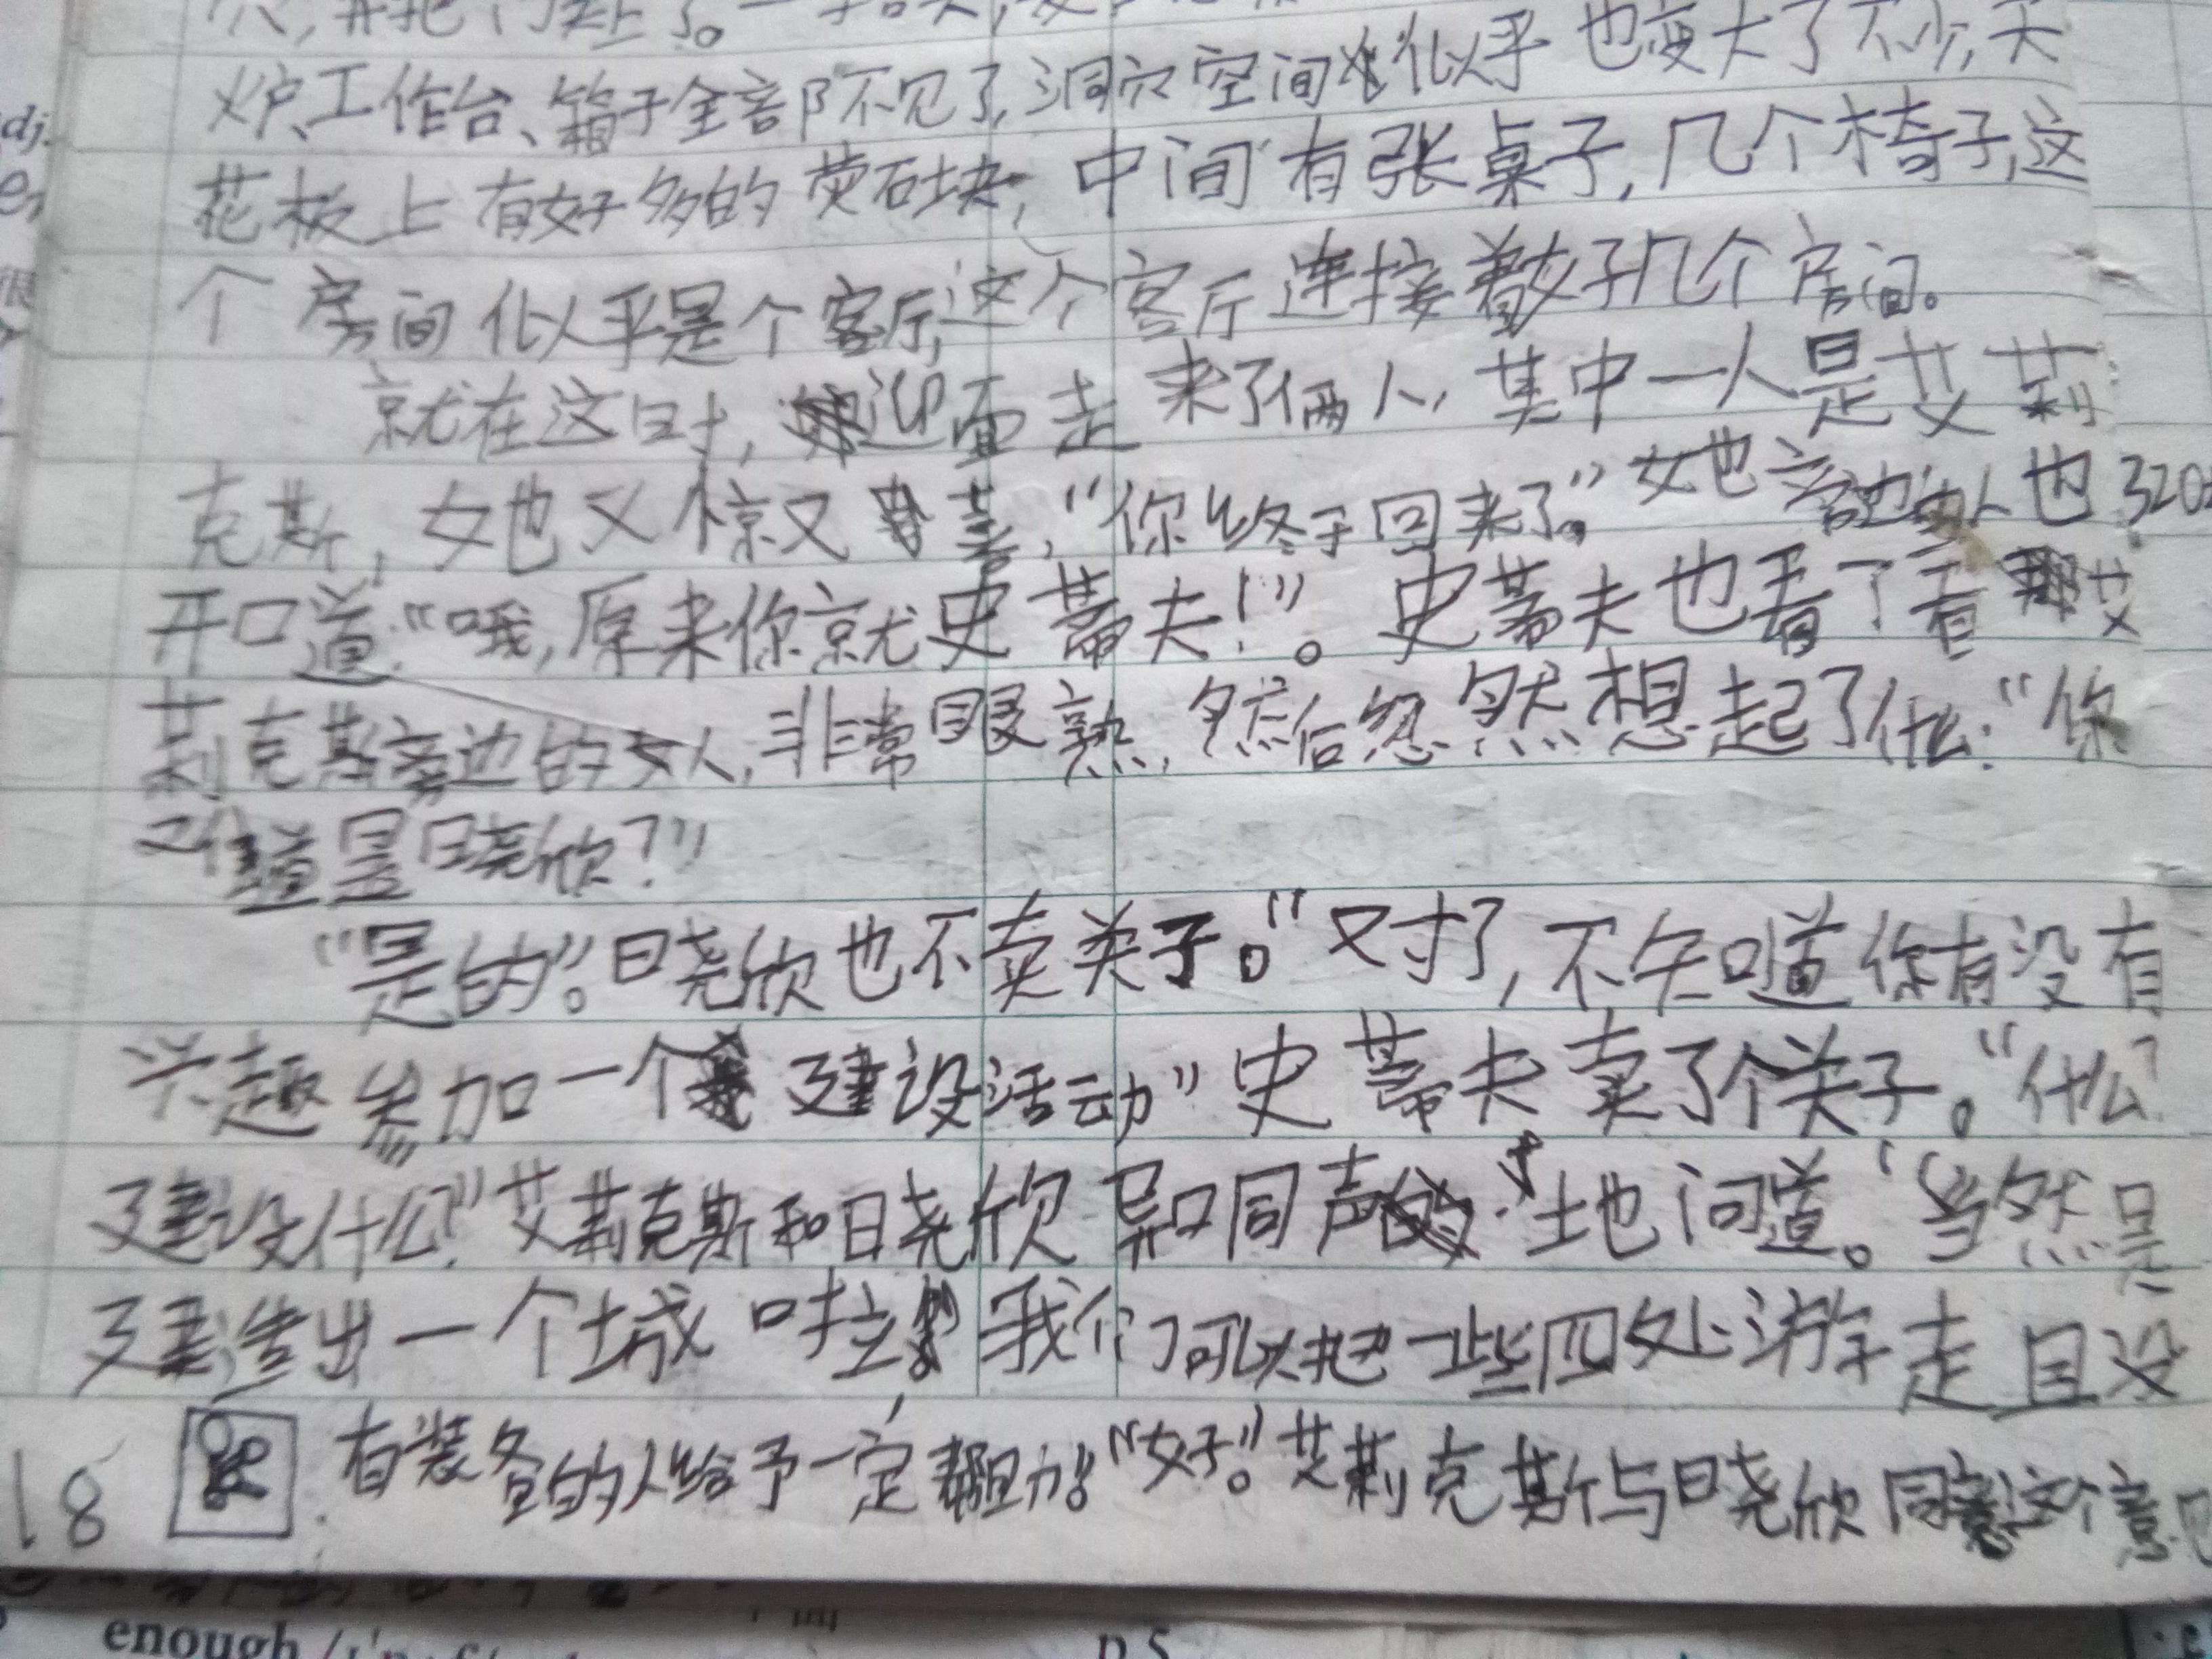 穴,并把门关上了。一
炉、工作台、箱子全部不见了,洞穴空间似乎也变大了不少,天
花板上有好多的荧石块,中间有张桌子,几个椅子,这
个房间似乎是个客厅,这个客厅连接着好几个房间。
就在这时,迎面走来了俩人,其中一人是艾莉
克斯,她又惊又喜,“你终于回来了。”她旁边的人也
320
开口道:“哦,原来你就史蒂夫!”。史蒂夫也看了看艾
莉克斯旁边的女人,非常眼熟,然后忽然想起了什么:“你
难道是晓欣?”
“是的”。晓欣也不卖关子。“对了,不知道你有没有
兴趣参加一个建设活动”史蒂夫卖了个关子。“什么?
建设什么?”艾莉克斯和晓欣异口同声地问道。“当然是
建造出一个城啦!我们可以把一些四处游走且没
有装备的人给予一定帮助。“好。”艾莉克斯与晓欣同意这个意见
18
enough